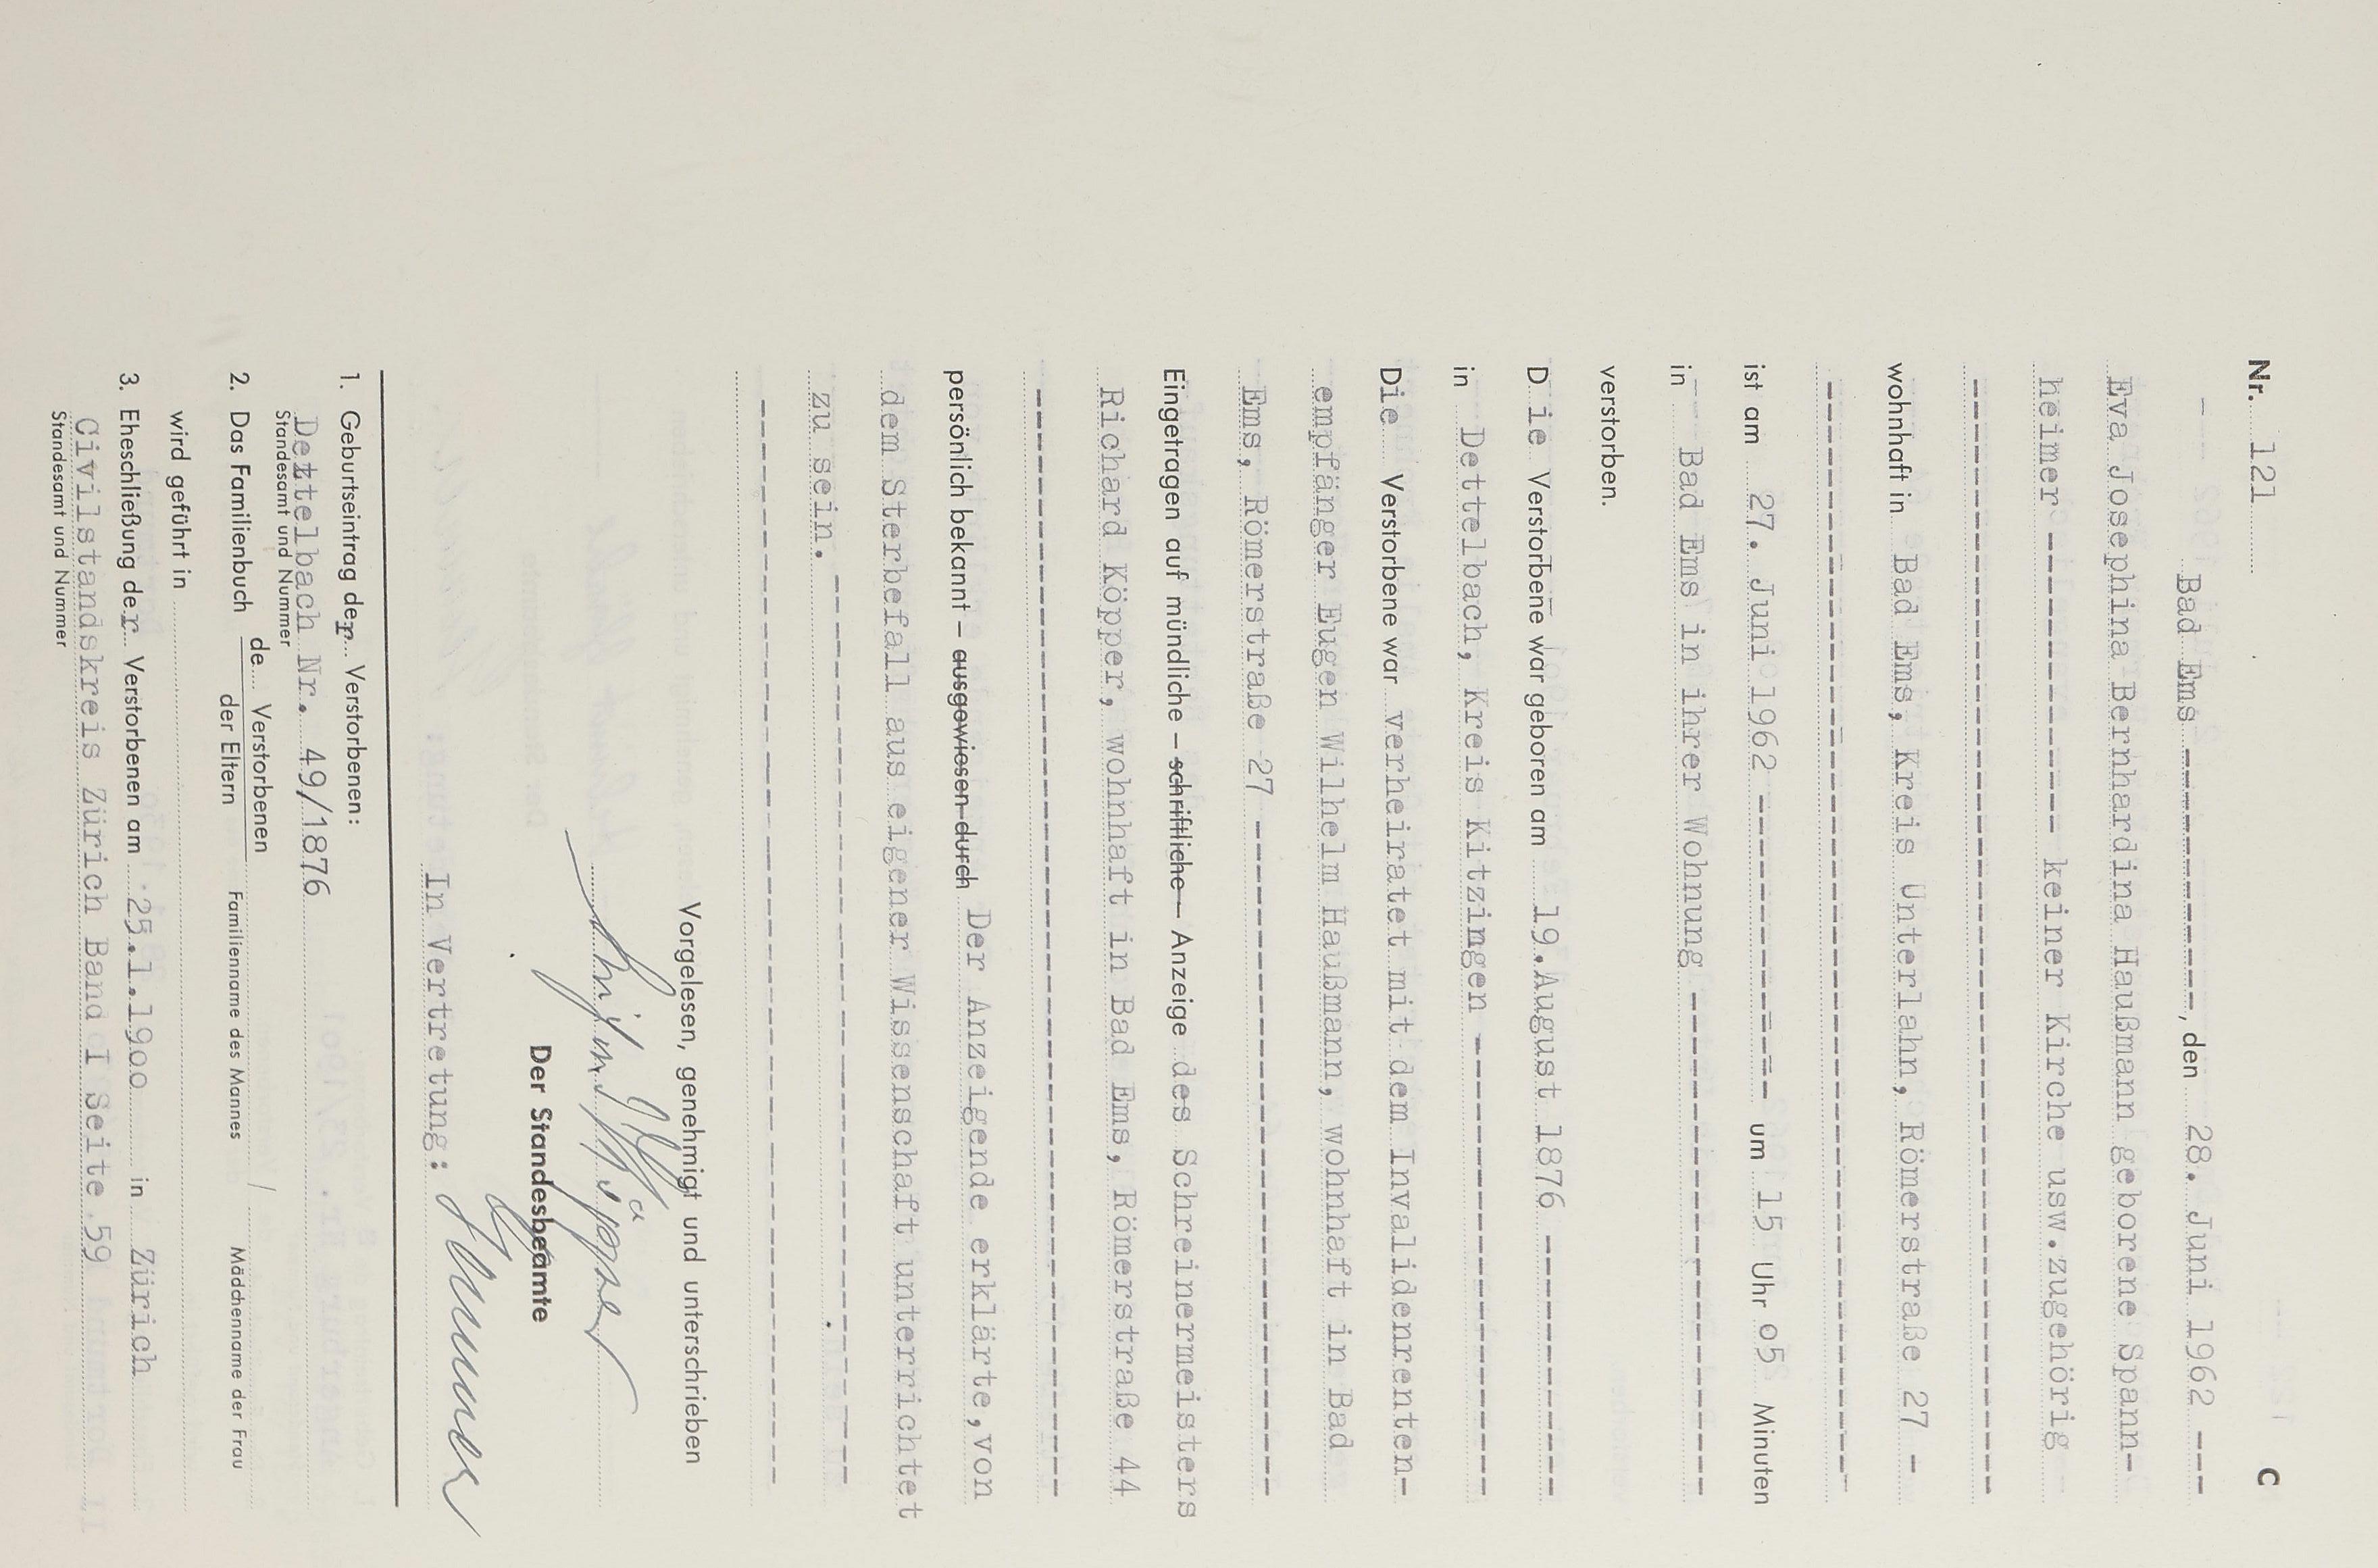 Nr. 121 C
Bad Ems ----------------, den 28. Juni 1962 ---
Eva Josephina Bernhardina Haußmann geborene Spann-
heimer ----------------- keiner Kirche usw.zugehörig
wohnhaft in Bad Ems, Kreis Unterlahn, Römerstraße 27 -
ist am 27. Juni 1962 ----------------- um 15 Uhr o5 Minuten
in Bad Ems in ihrer Wohnung ----------------------------
verstorben.
Die Verstorbene war geboren am 19.August 1876 --------------
in Dettelbach, Kreis Kitzingen --------------------------
Die Verstorbene war verheiratet mit dem Invalidenrenten-
empfänger Eugen Wilhelm Haußmann, wohnhaft in Bad
Ems, Römerstraße 27 --------------------------------------
Eingetragen auf mündliche – schriftliche – Anzeige des Schreinermeisters
Richard Köpper, wohnhaft in Bad Ems, Römerstraße 44
persönlich bekannt – ausgewiesen durch Der Anzeigende erklärte,von
dem Sterbefall aus eigener Wissenschaft unterrichtet
zu sein. --------------------------------------------------
Vorgelesen, genehmigt und unterschrieben
Der Standesbeamte
In Vertretung:
1. Geburtseintrag der Verstorbenen:
Dettelbach Nr. 49/1876
Standesamt und Nummer
2. Das Familienbuch de Verstorbenen
der Eltern Familienname des Mannes / Mädchenname der Frau
wird geführt in
3. Eheschließung der Verstorbenen am 25.1.19oo in Zürich
Civilstandskreis Zürich Band I Seite 59
Standesamt und Nummer